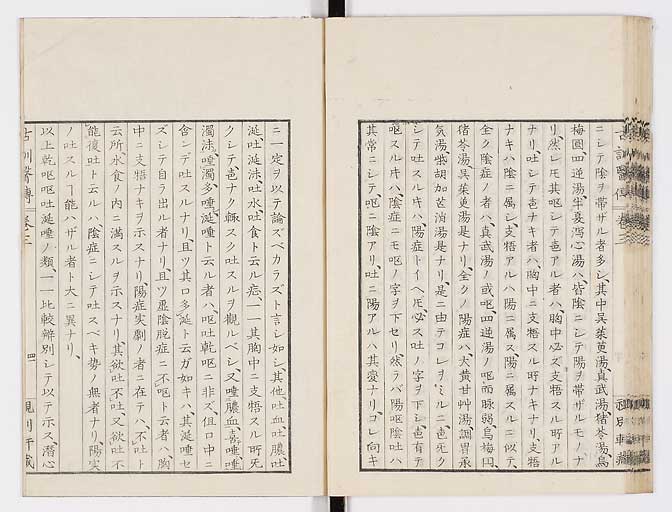 ニシテ陰ヲ帯ザル者多シ、其中呉茱萸湯、真武湯、猪苓湯、烏
梅圓、四逆湯、半夏瀉心湯ハ、皆陰ニシテ陽ヲ帯ザルモノナ
リ、然レ𪜈其呕シテ吐アル者ハ、胸中必ス支牾スル所アル
ナリ、吐シテ呕ナキ者ハ、胸中ニ支牾スル所ナキナリ、支牾
ナキハ陰ニ属シ支牾アルハ陽ニ属ス、陽ニ属スルニ似テ、
全ク陰症ノ者ハ、真武湯ノ或呕、四逆湯ノ呕而脉弱、烏梅圓、
猪苓湯、呉茱萸湯是ナリ、全クノ陽症ハ、大黄甘艸湯、調胃承
気湯、柴胡加芒消湯是ナリ、是ニ由テコレヲミルニ
シテ吐スルトキハ、陽症トイヘ𪜈必ス吐ノ字ヲ下シ
呕スル𪜈ハ、陰症ニモ呕ノ字ヲ下セリ、然ラバ陽呕陰吐ハ
其常ニシテ、呕ニ陰アリ、吐ニ陽アルハ其変ナリ、コレ向キ
ニ一定ヲ以テ論ズベカラズト言シ如シ、其他、吐血、吐膿、吐
涎、吐涎沫、吐水、吐食ト云ル症、一一其胸中ニ支牾スル所无
クシテ、ナク輙スク吐スルヲ觀ルベシ、又唾膿血、喜唾、唾
濁沫、唾濁多、唾涎ト云ル者ハ、呕吐乾呕ニ非ズ、但口中ニ
含ンデ吐スルナリ、且ツ其口多涎ト云ガ如キハ、其涎唾セ
ズシテ自ラ出ル者ナリ、且ツ虚陰脱症ニ不呕ト云者ハ、胸
中ニ支牾ナキヲ示スナリ、陽症実劇ノ者ニ在テハ、不吐ト
云所水食ノ内ニ満スルヲ示スナリ、其欲吐不吐、又欲吐不
能復吐ト云ルハ、陰症ニシテ吐スベキ勢ノ無者ナリ、陽実
ノ吐スルヿ能ハザル者ト大ニ異ナリ、
以上乾呕、呕吐、涎唾ノ類、一一比較辨別シテ以テ示ス、潜心
古訓醫傳 卷三 四